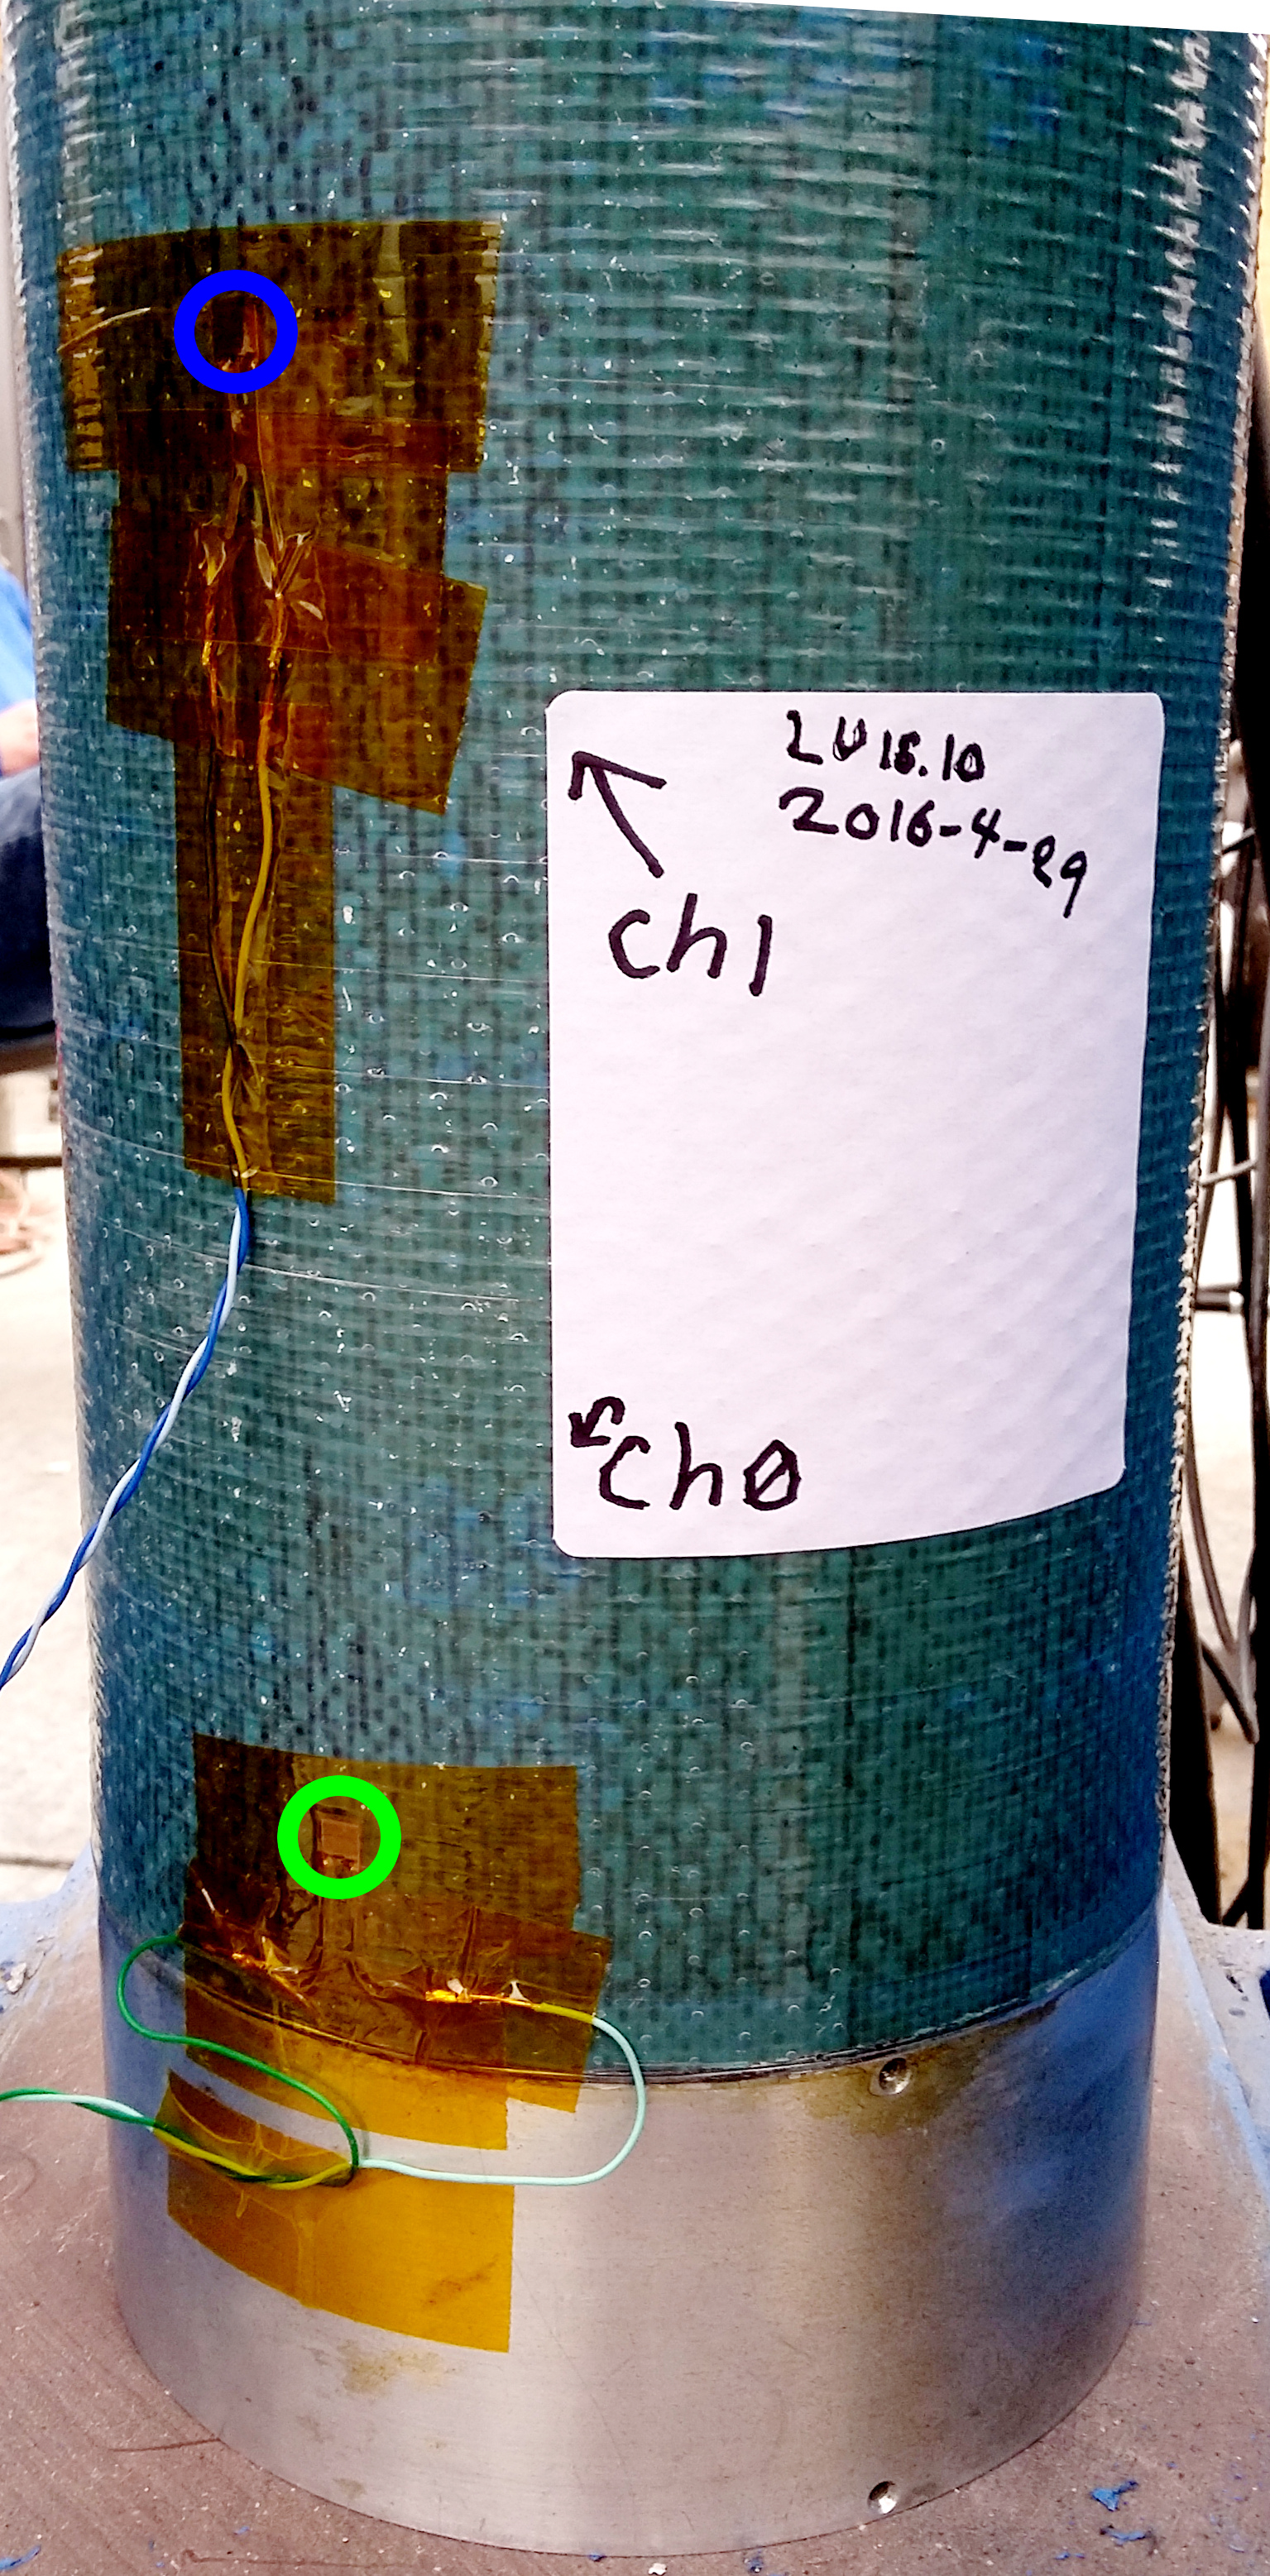 LV15.10
2016-4-29
ch1
ch0